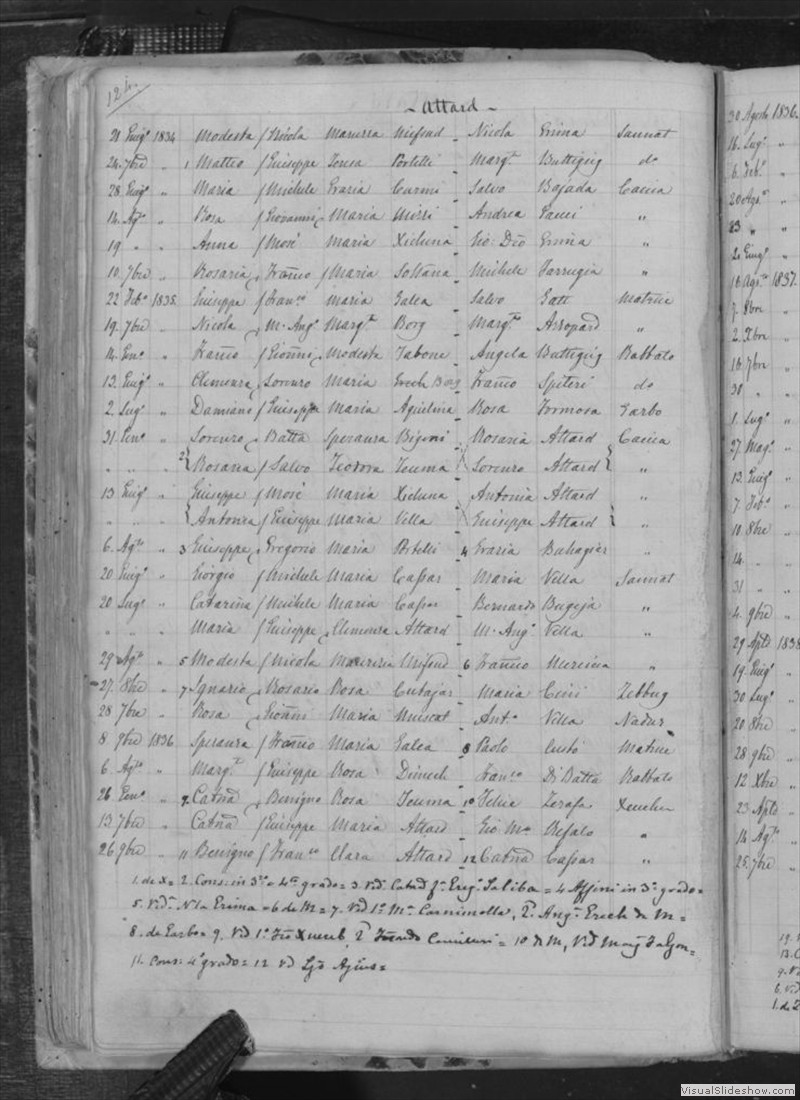 ~ Attard ~
21 Giugº 1834 Modesta / Nicola Maruzza Mifsud Nicola Grima Sannat
24. 7bre " 1 Matteo / Giuseppe Portelli Margta Buttigieg do
28 Giugº " Maria / Michele Grazia Curmi Salvo Bajada Caccia
14 Agto " Rosa / Giovanni Maria Andrea "
19 " " Anna / Mosé Maria Xicluna Gio: Dio Grima "
10. 7bre " Rosaria / Franco / Maria Soltana Michele Farrugia "
22 Febº 1835. Giuseppe / Franco Maria Galea Salvo Gatt
19. 7bre " Nicola M. Angº Margta Borg Margta Azzopard "
14 Genº " Franco / Modesta Tabone Angela Buttigieg Rabbato
13. Giugº " Clemenza Lorenzo Maria Grech Borg Franco Spiteri do
2. Lugº " Damiano / Giuseppe Maria Aquilina Rosa Formosa Garbo
31. Genº " Lorenzo Batta Speranza Bigeni Rosaria Attard Caccia
" " " 2 Rosaria / Salvo Teodora Touma Lorenzo Attard "
13 Giugº " Giuseppe / Mosé Maria Xicluna Antonia Attard "
" " " Antonia / Giuseppe Maria Vella Giuseppe Attard "
6. Agto " 3 Giuseppe Gregorio Maria Portelli 4 Grazia Buhagier "
20 Giugº " Giorgio / Michele Maria Cassar Maria Vella Sannat
20 Lugº " Catarina / Michele Maria Cassar Bernardo Bugeja "
" " " Maria / Giuseppe Clemenza Attard M. Angº Vella "
29 Agto " 5 Modesta / Nicola Mifsud 6 Franco "
27. 8bre " 7 Ignazio Rosario Rosa Cutajar Maria Cini Zebbug
28 7bre " Rosa Gioanni Maria Muscat Antº Vella Nadur
8 9bre 1836 Speranza / Franco Maria Galea 8 Paolo Cusó
6. Agto " Margta / Giuseppe Rosa Dimech Franco Di Batta Rabbato
26 Genº " 9. Catna Benigno Rosa Touma 10 Felice Zerafa Xeuchia
13 7bre " Catna / Giuseppe Maria Attard Gio Ma Refalo "
26 9bre " 11 Benigno / Franco Clara Attard 12 Catna Cassar "
1. de X = 2. Cons: in 3º e 4to grado = 3. Vedº Catna fª Eugº Saliba = 4 Affini in 3º grado =
5. Vedº Nla Grima = 6 de M = 7. Vedº 1º Ma 2º Angª Grech de M =
8. de Garbo = 9. Vd 1º Xuereb, 2º = 10 de M, Vd
11. Cons: 4º grado = 12. Vd Agius =
30 Agosto 1836.
16. Lugº "
6. Febº "
20 Agto "
23 " "
2. Giugº
18 Agto 1837.
7. 8bre
2. Xbre
16. 7bre
31 "
1. Lugº
27. Magº
13. Giugº
7. Febº
10. 8bre
14. "
31 "
4. 9bre
29 Aple 1838
19. Giugº
30 Lugº
20. 8bre
28. 9bre
12 Xbre
23 Aple
14 Agto
25. 7bre
VisualSlideshow.com